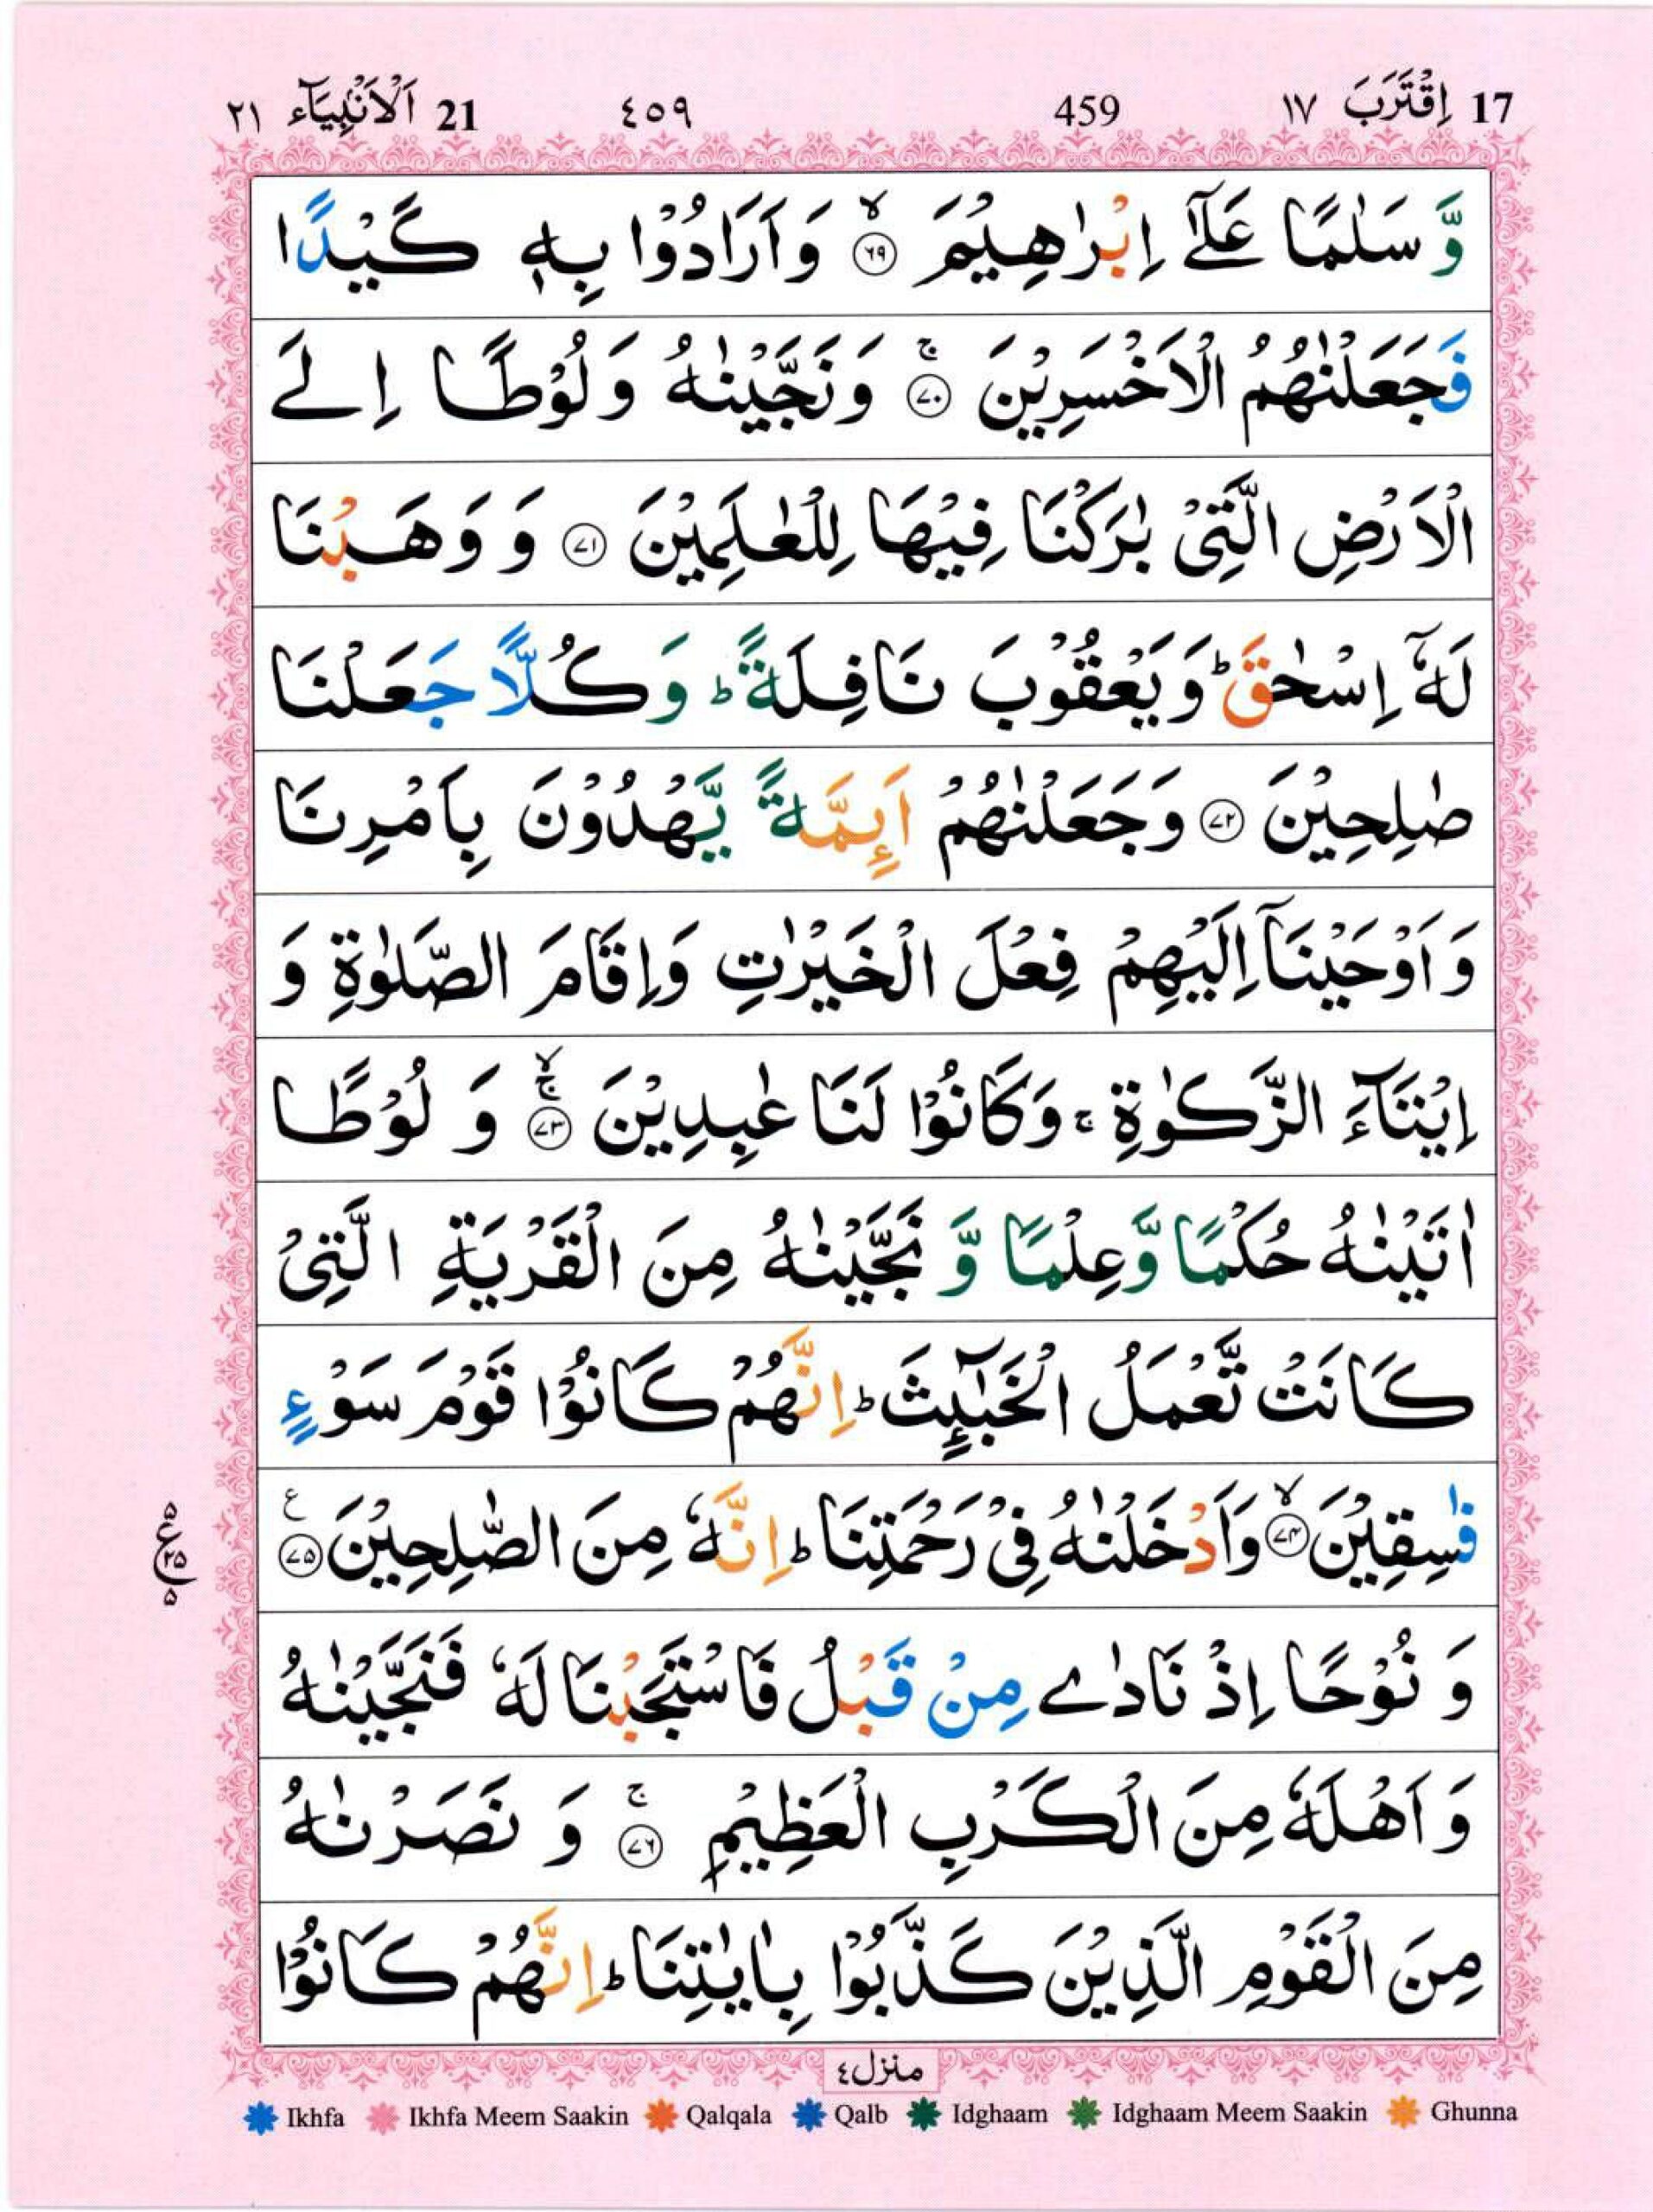 17 اِقْتَرَبَ ١٧ 459 ٤٥٩ 21 اَلْاَنْۢبِيَآء ٢١
وَّ سَلٰمًا عَلٰٓى اِبْرٰهِيْمَ ۙ﴿۶۹﴾ وَ اَرَادُوْا بِهٖ كَيْدًا
فَجَعَلْنٰهُمُ الْاَخْسَرِيْنَ ۚ﴿۷۰﴾ وَ نَجَّيْنٰهُ وَ لُوْطًا اِلَى
الْاَرْضِ الَّتِيْ بٰرَكْنَا فِيْهَا لِلْعٰلَمِيْنَ ﴿۷۱﴾ وَ وَهَبْنَا
لَهٗٓ اِسْحٰقَ ؕ وَ يَعْقُوْبَ نَافِلَةً ؕ وَ كُلًّا جَعَلْنَا
صٰلِحِيْنَ ﴿۷۲﴾ وَ جَعَلْنٰهُمْ اَئِمَّةً يَّهْدُوْنَ بِاَمْرِنَا
وَ اَوْحَيْنَآ اِلَيْهِمْ فِعْلَ الْخَيْرٰتِ وَ اِقَامَ الصَّلٰوةِ وَ
اِيْتَآءَ الزَّكٰوةِ ۚ وَ كَانُوْا لَنَا عٰبِدِيْنَ ۚۙ﴿۷۳﴾ وَ لُوْطًا
اٰتَيْنٰهُ حُكْمًا وَّ عِلْمًا وَّ نَجَّيْنٰهُ مِنَ الْقَرْيَةِ الَّتِيْ
كَانَتْ تَّعْمَلُ الْخَبٰٓئِثَ ؕ اِنَّهُمْ كَانُوْا قَوْمَ سَوْءٍ
فٰسِقِيْنَ ۙ﴿۷۴﴾ وَ اَدْخَلْنٰهُ فِيْ رَحْمَتِنَا ؕ اِنَّهٗ مِنَ الصّٰلِحِيْنَ ﴿۷۵﴾ ع
۵ ع ۲۵ ۵
وَ نُوْحًا اِذْ نَادٰى مِنْ قَبْلُ فَاسْتَجَبْنَا لَهٗ فَنَجَّيْنٰهُ
وَ اَهْلَهٗ مِنَ الْكَرْبِ الْعَظِيْمِ ۚ﴿۷۶﴾ وَ نَصَرْنٰهُ
مِنَ الْقَوْمِ الَّذِيْنَ كَذَّبُوْا بِاٰيٰتِنَا ؕ اِنَّهُمْ كَانُوْا
منزل ٤
Ikhfa Ikhfa Meem Saakin Qalqala Qalb Idghaam Idghaam Meem Saakin Ghunna